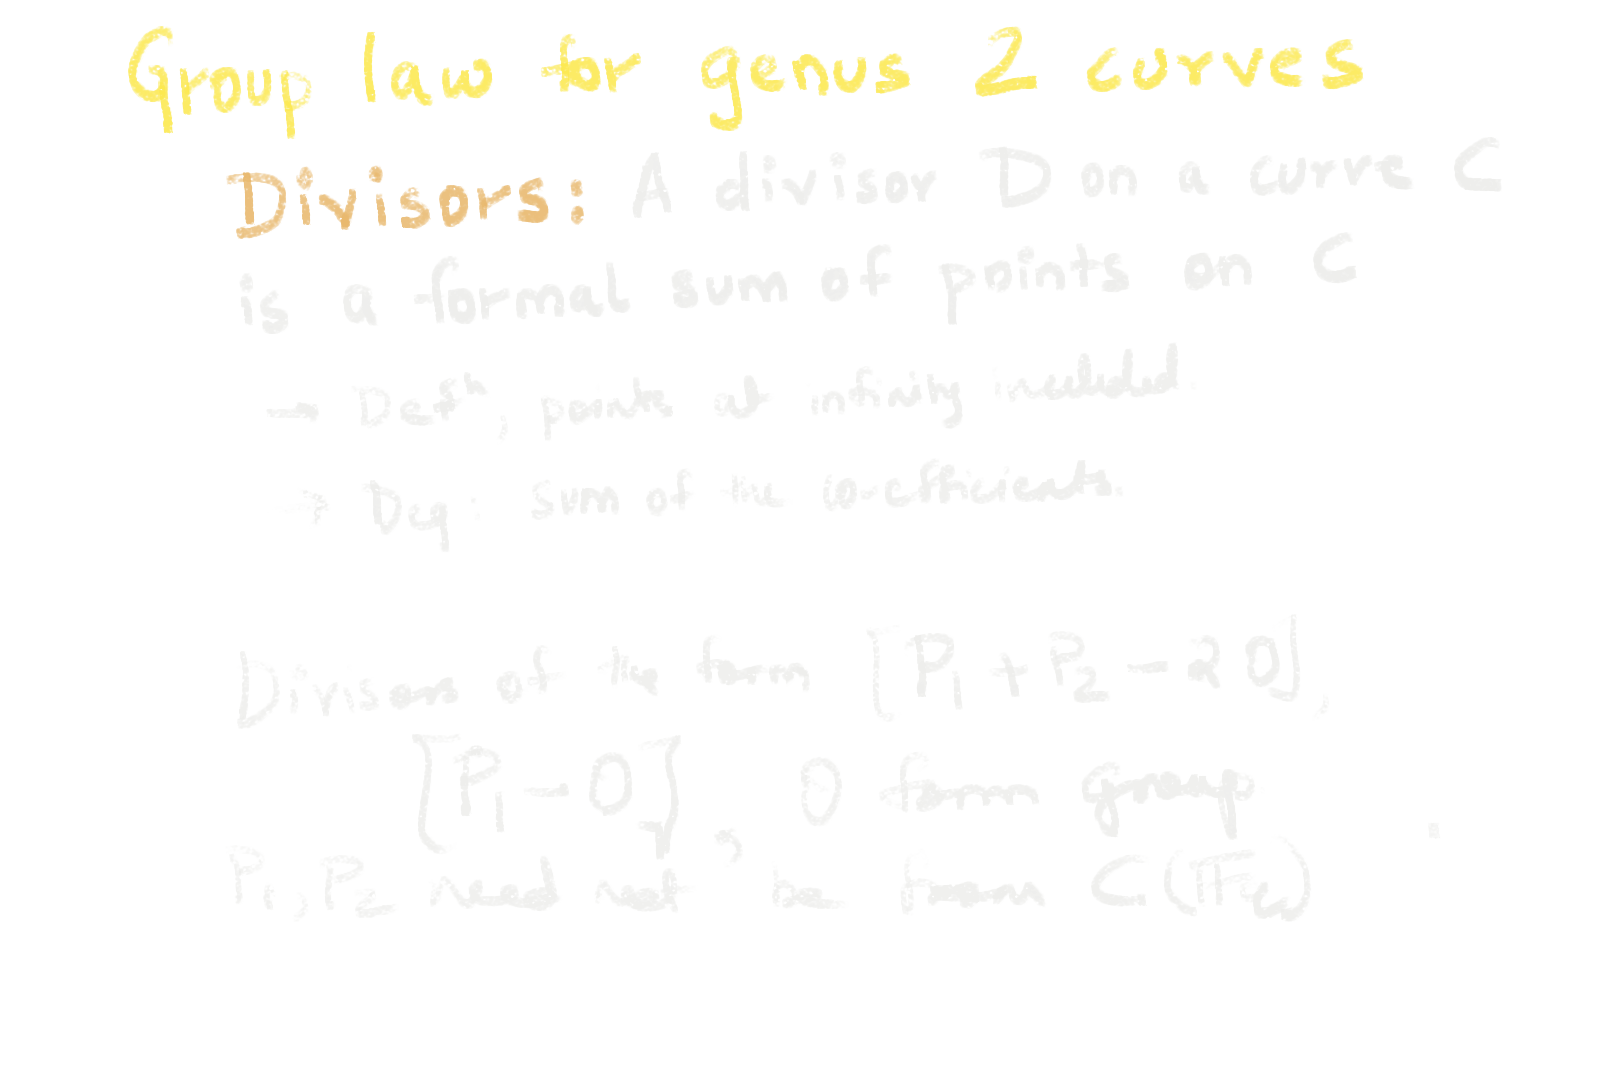 Group law for genus 2 curves
Divisors: A divisor D on a curve C
is a formal sum of points on C
→ Defⁿ, points at infinity included.
→ Deg: sum of the co-efficients.
Divisors of the form [P₁ + P₂ - 2O],
[P₁ - O], O form group
P₁, P₂ need not be from C(F